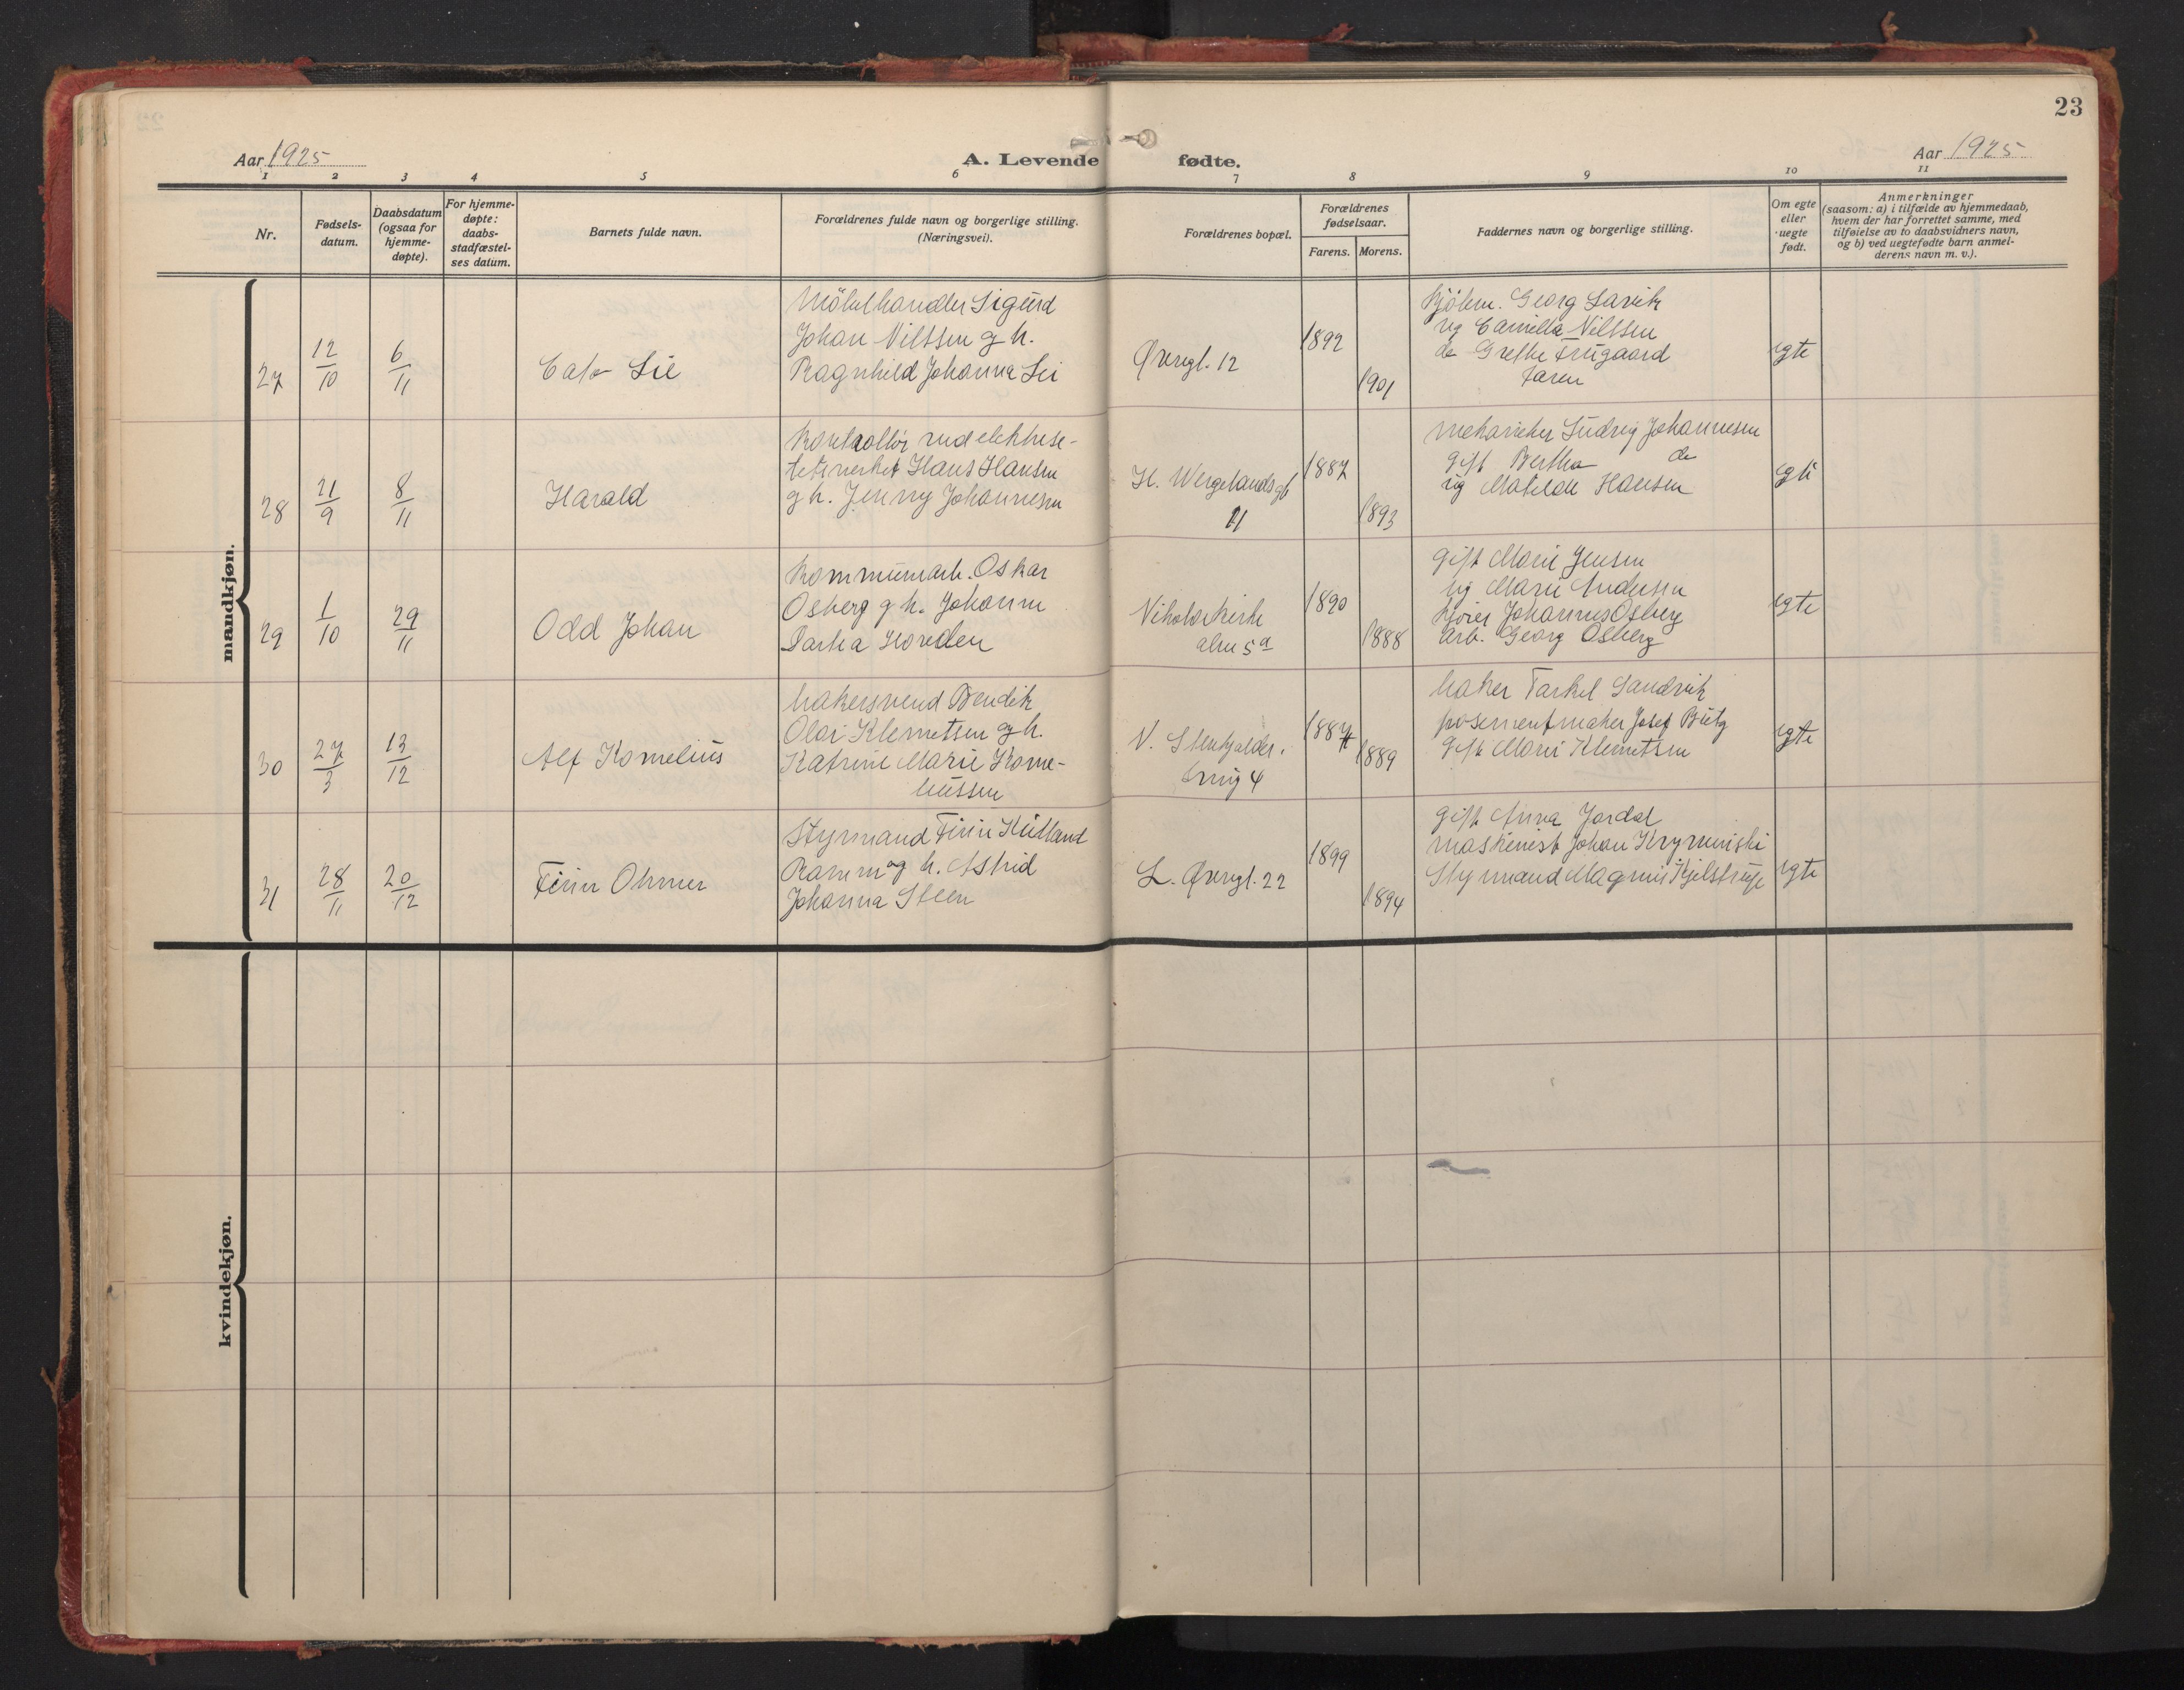 23
Aar 1925
A. Levende fødte.
Aar 1925
1 2 3 4 5 6 7 8 9 10 11
Nr.
Fødsels-
datum.
Daabsdatum
(ogsaa for
hjemme-
døpte).
For hjemme-
døpte:
daabs-
stadfæstel-
ses datum.
Barnets fulde navn.
Forældrenes fulde navn og borgerlige stilling.
(Næringsvei).
Forældrenes bopæl.
Forældrenes
fødselsaar.
Farens. Morens.
Faddernes navn og borgerlige stilling.
Om egte
eller
uegte
født.
Anmerkninger
(saasom: a) i tilfælde av hjemmedaab,
hvem der har forrettet samme, med
tilføielse av to daabsvidners navn,
og b) ved uegtefødte barn anmel-
derens navn m. v.).
mandkjøn.
27
12/10
6/11
Cato Lie
Möbelhandler Sigurd
Johan Nilssen g h.
Ragnhild Johanna Lie
Øvregt. 12
1892
1901
Kjöbm. Georg Larvik
ug Camilla Nilssen
do Grethe Frugaard
faren
egte
28
21/9
8/11
Harald
Kontrollör ved elektrise-
tetsverket Hans Hansen
g h. Jenny Johannesen
H. Wergelandsgt
11
1887
1893
mekaniker Ludvig Johannesen
gift Bertha do
ug Matilde Hansen
egte
29
1/10
29/11
Odd Johan
Kommunearb. Oskar
Osberg g h. Johanne
Hovden
Nikolaikirke
alm 5a
1890
1888
gift Marie Jensen
ug Marie Andersen
Johannes Osberg
arb. Georg Osberg
egte
30
27/3
13/12
Alf Kornelius
bakersvend Bendik
Olai Klemetsen g h.
Katrine Marie Korne-
liussen
N. Stenkjelder-
smug 4
1887
1889
baker Torkel Sandvik
posementmaker Josef
gift Marie Klemetsen
egte
31
28/11
20/12
Finn Ohmer
Styrmand Finn
Ramm og h. Astrid
Johanna Steen
L. Øvregt. 22
1899
1894
gift Anna Jordal
maskinist Johan
Styrmand Magnus Kjelstrup
egte
kvindekjøn.